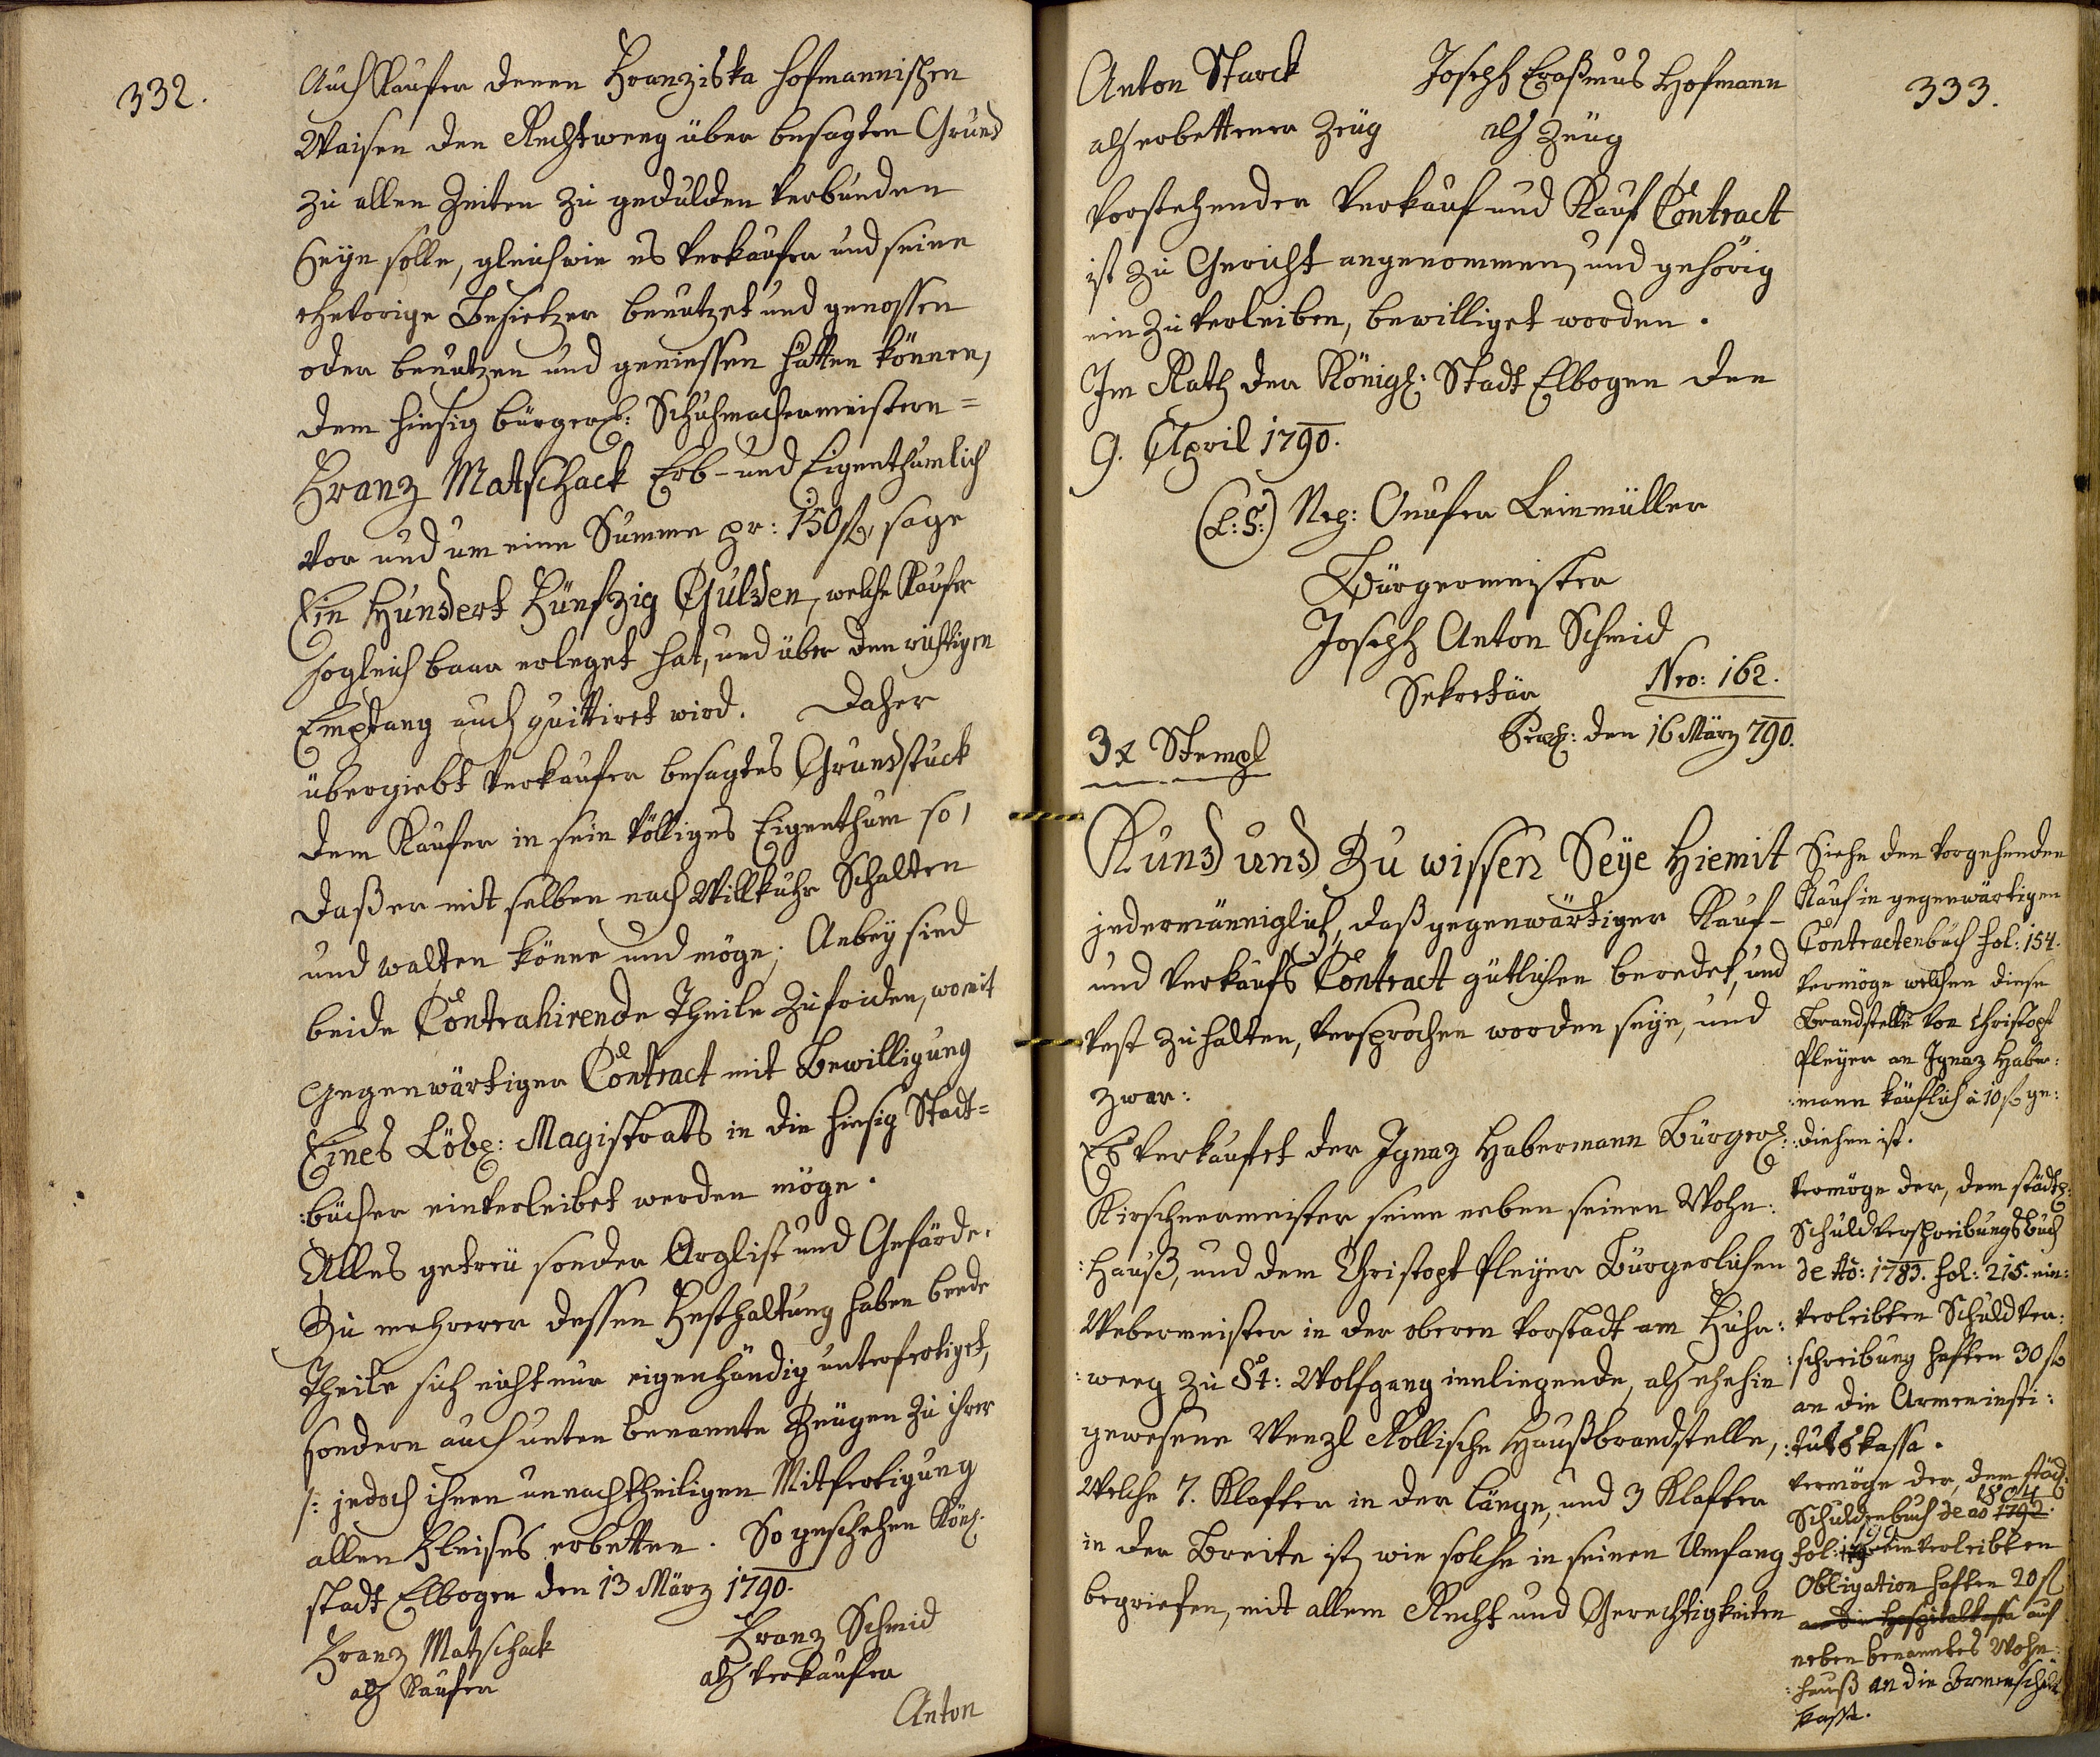 332.
Auch Kaufer denen Franziska Hofmannischen
Waisen den Rechtweeg über besagten Grund
zu allen Zeiten zu gedulden verbunden
seyn solle, gleichwie es Verkaufer und seine
ehevorige Besietzer benutzet und genossen
oder benutzen und geniessen hätten können,
dem hiesig bürgerl: Schuhmachermeistern=
Franz Matschack Erb- und Eigenthumlich
vor und um eine Summe pr: 150 fl, sage
Ein Hundert Fünfzig Gulden, welche Kaufer
sogleich baar erleget hat, und über den richtigen
Empfang auch quittiret wird. Daher
übergiebt Verkaufer besagtes Grundstuck
dem Kaufer in sein völliges Eigenthum so,
daß er mit selben nach Willkuhr Schalten
und walten könne und möge; Anbey sind
beide Contrahirende Theile Zufriden, womit
gegenwärtiger Contract mit Bewilligung
Eines Löbl: Magistrats in die hiesig Stadt=
:bücher einverleibet werden möge.
Alles getreu sonder Arglist und Gefärde.
Zu mehrerer dessen Festhaltung haben beede
Theile sich nicht nur eigenhändig unterfertiget,
sondern auch unten benannte Zeugen zu ihrer
/: jedoch ihnen unnachtheiligen Mitfertigung
allen Fleises erbetten. So geschehen Königl.
stadt Elbogen den 13 März 1790.
Franz Matschack Franz Schmid
als Kaufer als Verkaufer
Anton
333.
Anton Starck Joseph Eraßmus Hofmann
als erbettener Zeüg als Zeüg
Vorstehender Verkauf und Kauf Contract
ist zu Gericht angenommen, und gehörig
ein zu verleiben, bewilliget worden.
Im Rath der Königl: Stadt Elbogen den
9. April 1790.
(L: S:) Nep: Onufer Leinmüller
Bürgermeister
Joseph Anton Schmid
Sekretär Nro: 162.
Praes: den 16 März 790.
3 x Stempl
Kund und Zu wissen Seye Hiemit
jedermänniglich, daß gegenwärtiger Kauf-
und Verkaufs Contract gütlichen beredet, und
vest zu halten, versprochen worden seye, und
zwar:
Es verkaufet der Ignaz Habermann Bürgerl:
Kirschnermeister seine neben seinen Wohn:
:Hauß, und dem Christoph Pleyer Bürgerlichen
Webermeister in der oberen Vorstadt am Fuhr:
:weeg zu St: Wolfgang innliegende, als ehehin
gewesene Wenzl Köllische Haußbrandstelle,
Welche 7. Klafter in der Länge, und 3 Klafter
in der Breite ist, wie solche in seinen Umfang
begriefen, mit allem Recht und Gerechtigkeiten
Siehe den vorgehenden
Kauf in gegenwärtigen
Contractenbuch fol: 154.
vermöge welchen diese
Brandstelle von Christoph
Pleyer an Ignaz Haber:
:mann käuflich à 10 fl ge:
:diehen ist.
Vermöge der, dem städtl:
Schuldverschreibungsbuch
de Ao: 1783. fol: 215. ein:
verleibten Schuldver:
:schreibung haften 30 fl
an die Armeninsti:
:tutskassa.
Vermöge der, dem städt:
Schuldenbuch de ao 1792 1804
fol: einverleibten
Obligation haften 20 fl
an die Hospitalkassa auf
neben benanntes Wohn:
:hauß an die Armenschul
kassa.